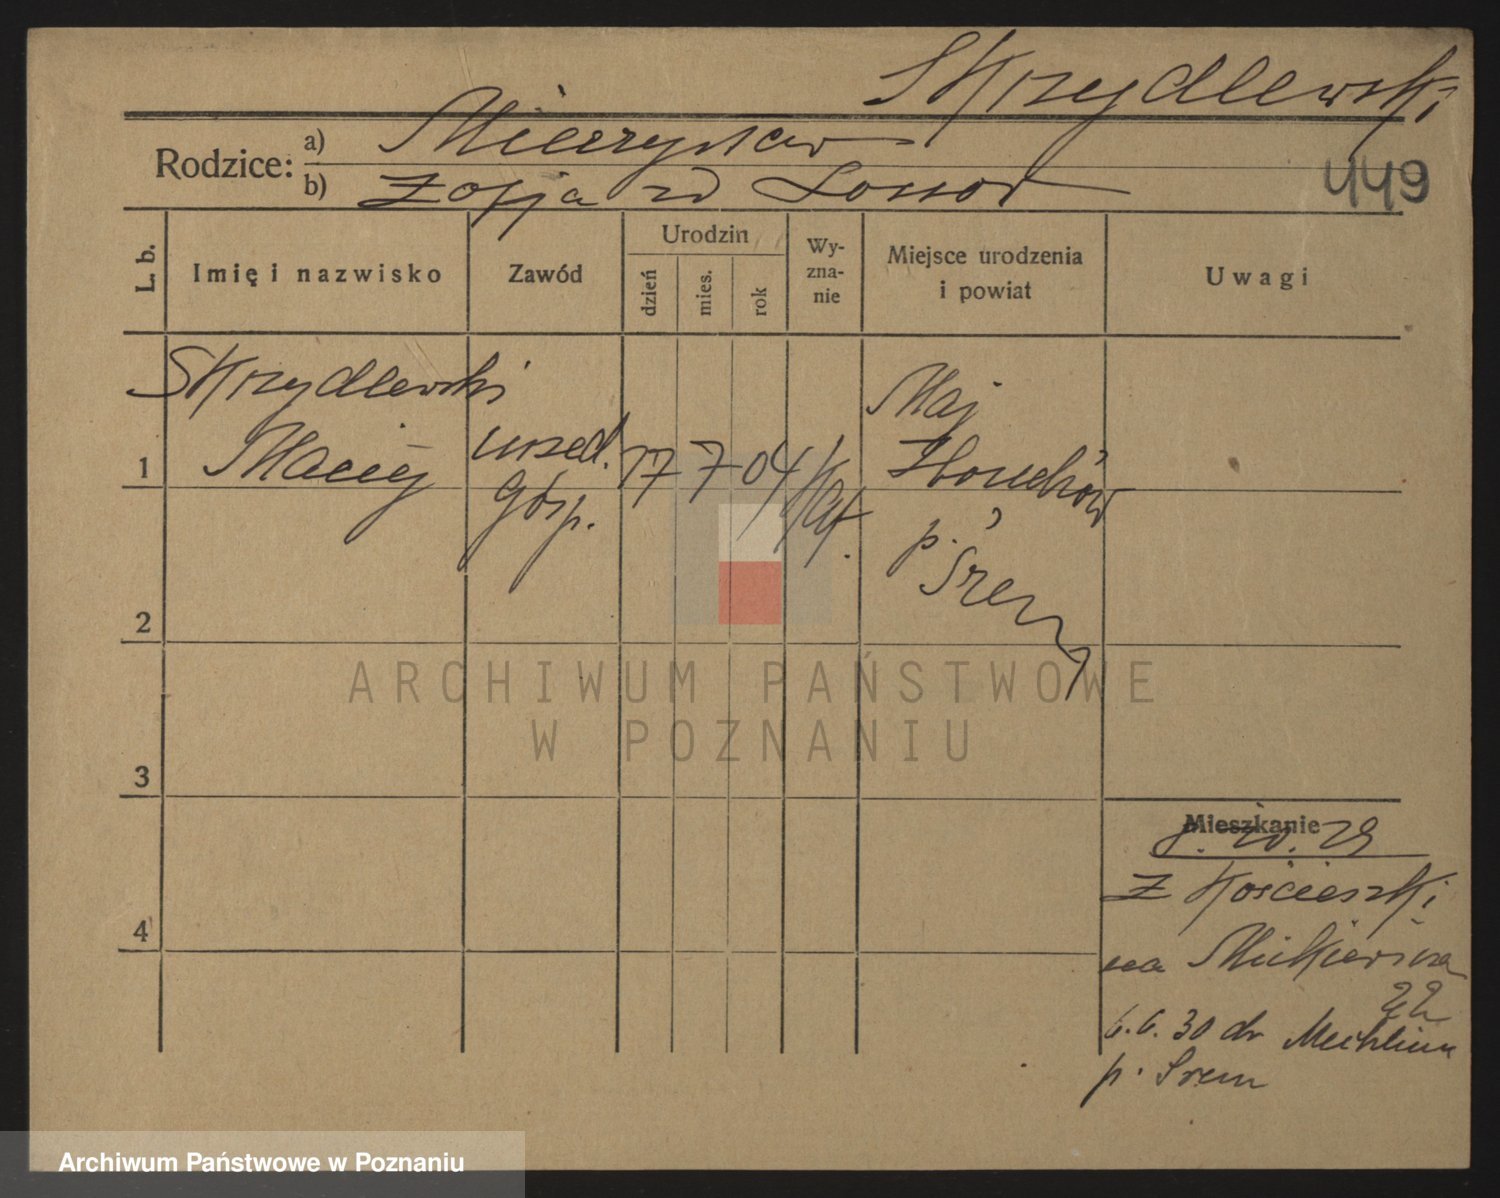 Skrzydlewski
Rodzice: a) Mieczysław
b) Zofja zd
449
L. b.
Imię i nazwisko
Zawód
Urodzin
dzień
mies.
rok
Wy-
zna-
nie
Miejsce urodzenia
i powiat
Uwagi
Skrzydlewski
1 Maciej
urzęd.
gosp.
17 7 04
kat.
Maj
p. Śrem
2
3
4
Mieszkanie
z Kościeszki
na Mickiewicza
22
6.6.30 do Mechlina
p. Śrem
ARCHIWUM PAŃSTWOWE
W POZNANIU
Archiwum Państwowe w Poznaniu